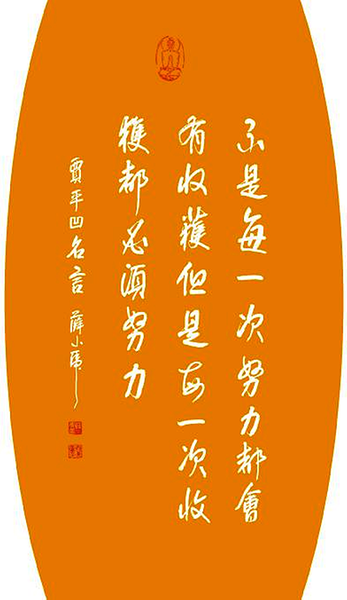 不是每一次努力都會
有收穫但是每一次收
獲都必須努力
賈平凹名言 薛小虎